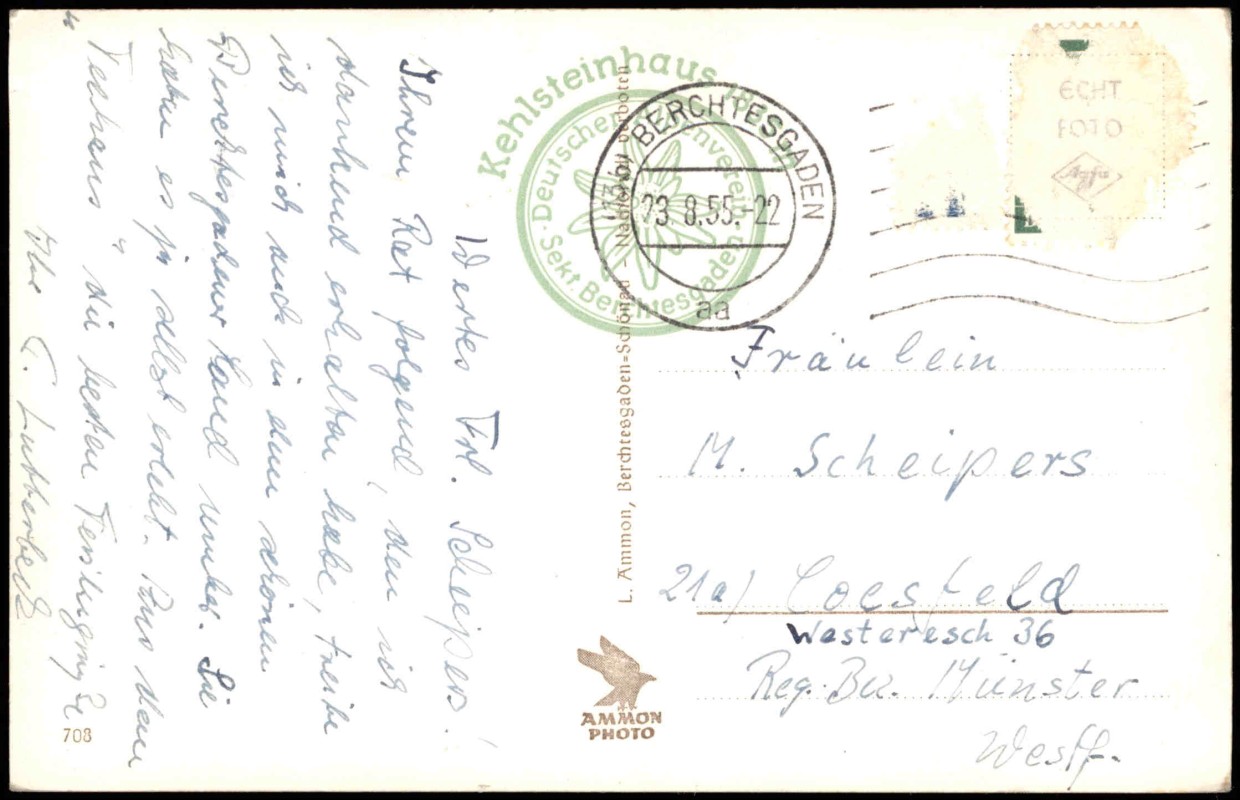 Wertes Frl. Scheipers!
Ihrem Rat folgend, den ich
dankend erhalten habe, treibe
ich mich auch in dem schönen
Berchtesgadener Land umher. Sie
haben es ja selbst erlebt. Aus dem
"Teehaus" die besten Feriengrüße
Ihr E. Lutterbeck
708
Kehlsteinhaus
Deutscher Alpenverein
Sekt. Berchtesgaden
BERCHTESGADEN
23.8.55.-22
aa
L. Ammon, Berchtesgaden=Schönau - Nachdruck verboten
AMMON
PHOTO
ECHT
FOTO
Agfa
Fräulein
M. Scheipers
21a) Coesfeld
Westeresch 36
Reg. Bez. Münster
Westf.